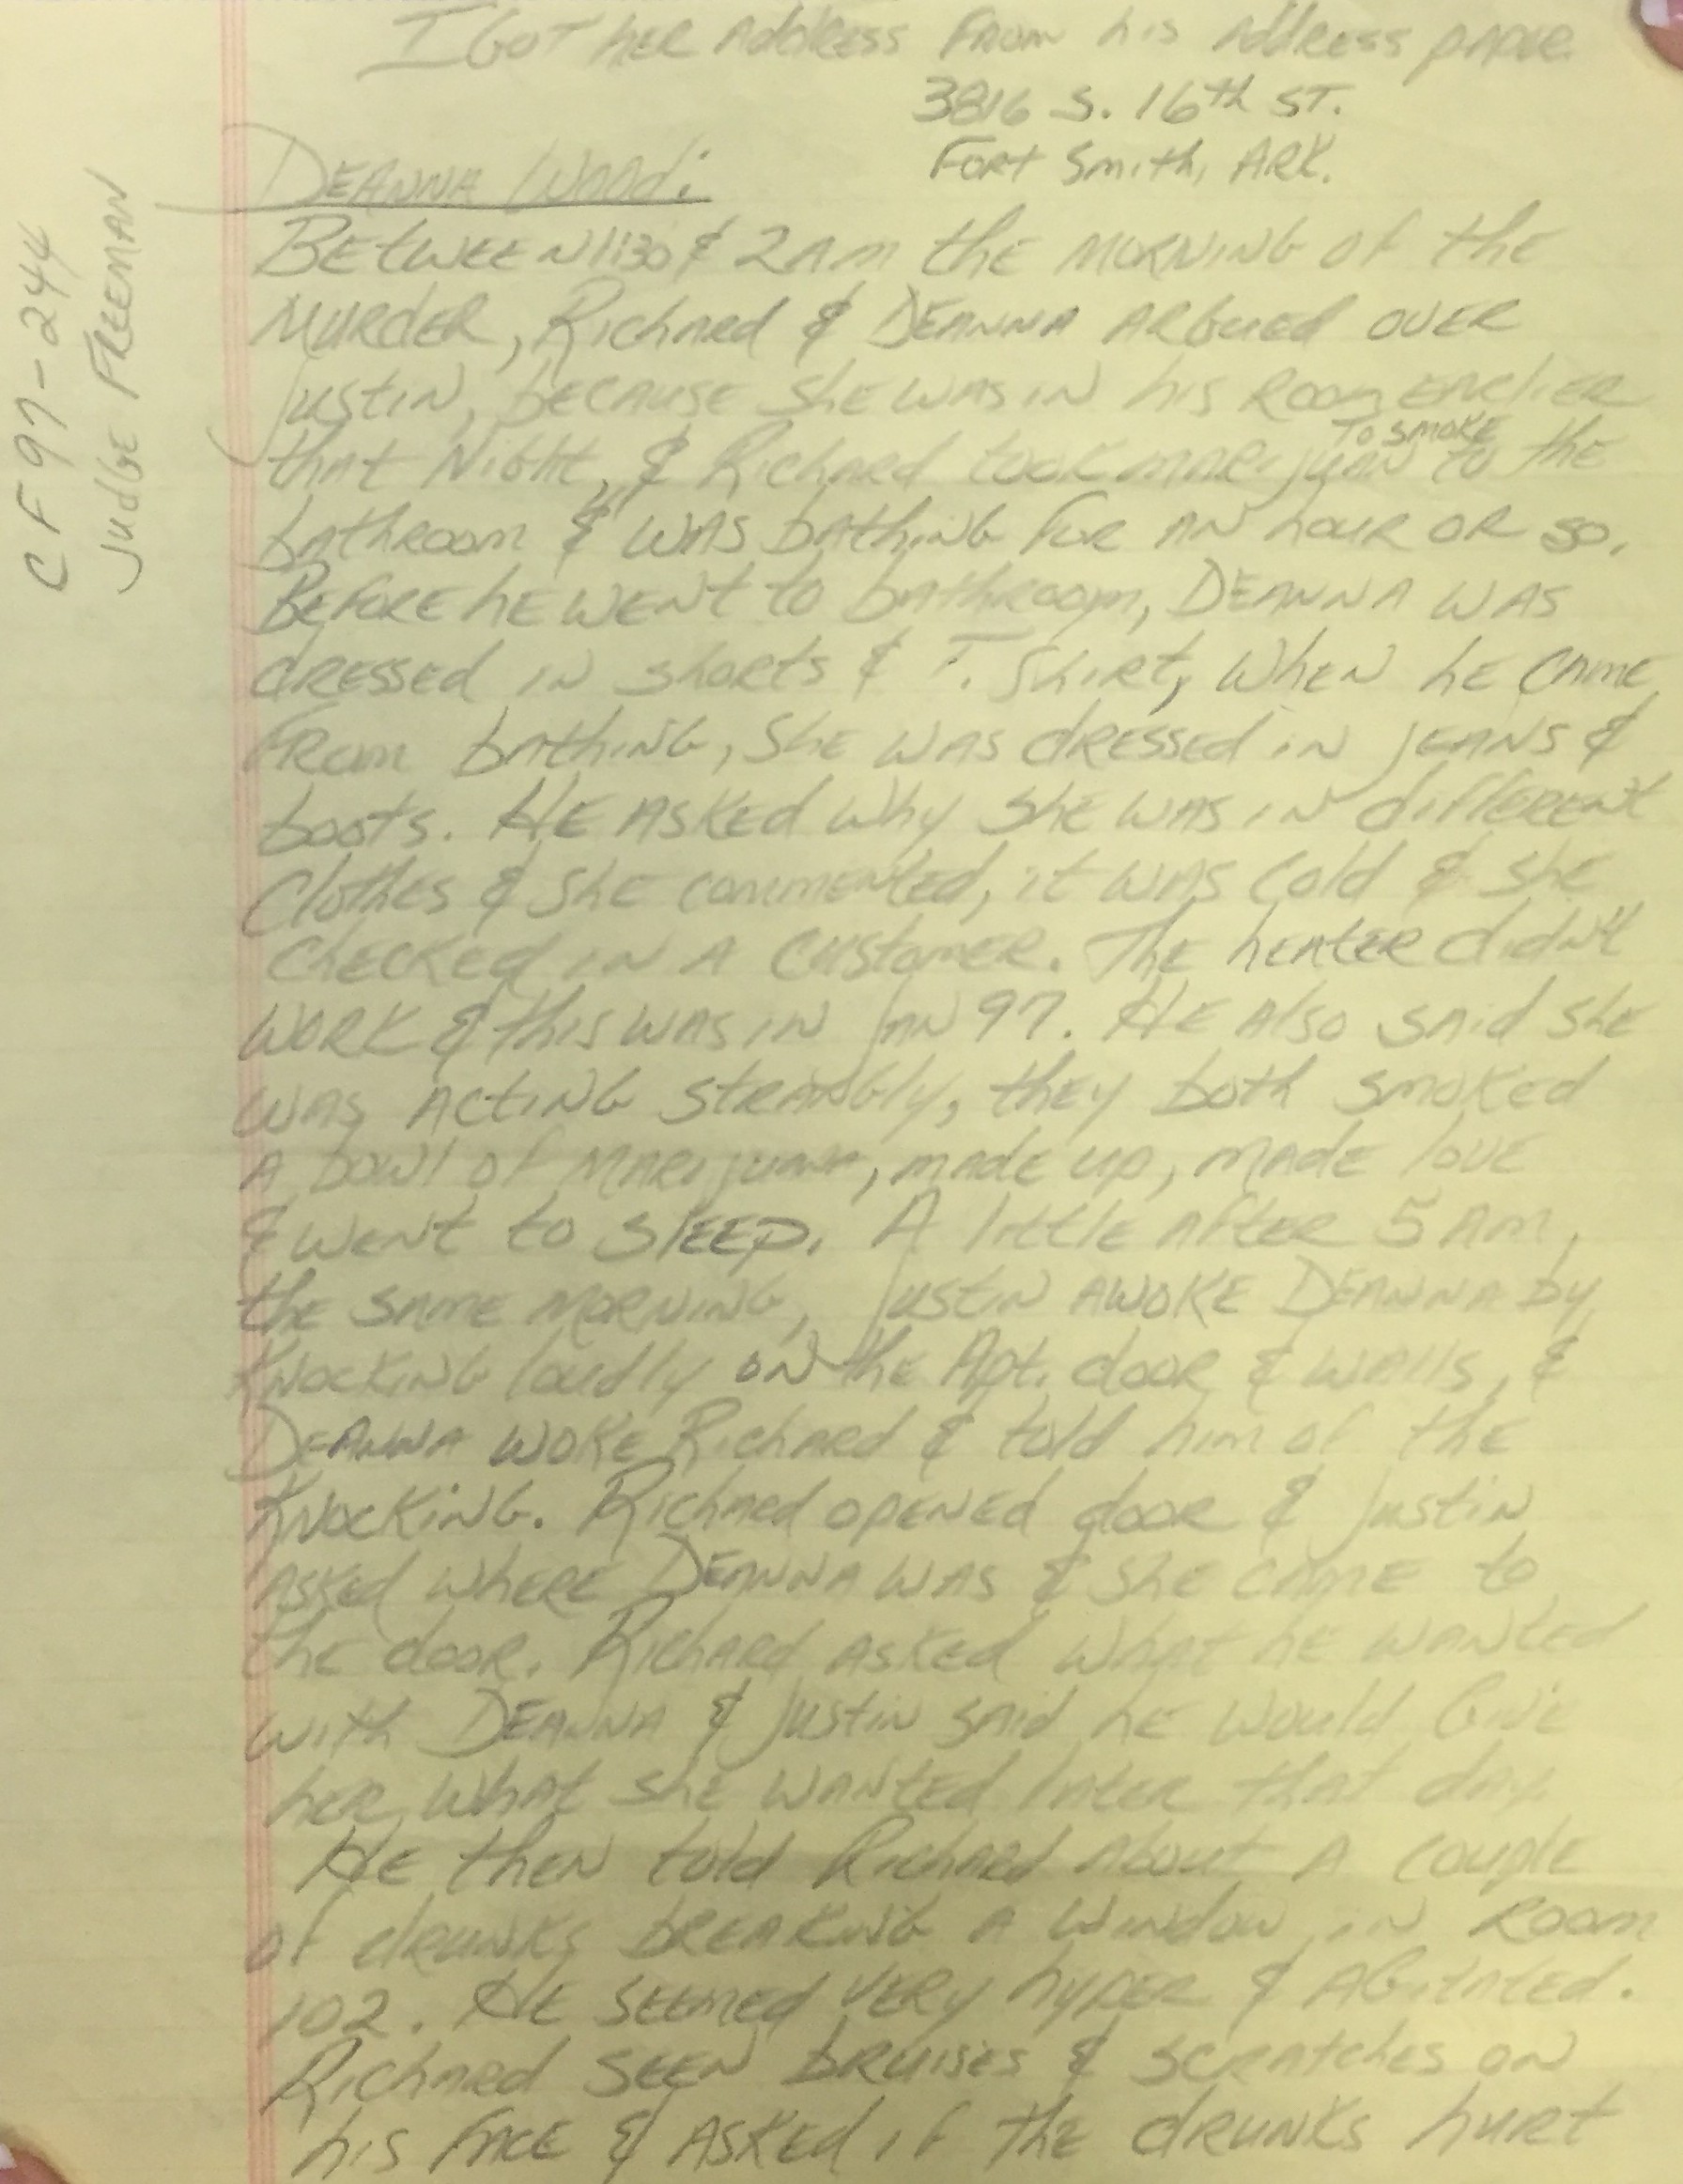 I GOT hER AddRESS FROM his AddRESS PAPER
3816 S. 16th ST.
FORT Smith, ARK.
DEANNA WOOD:
BETWEEN 1:30 & 2 AM the MORNING of the
MURDER, Richard & DEANNA ARGUED OVER
Justin, because She WAS IN his ROOM EARLIER
that Night, & Richard took marijuan to the
To SMOKE
bathroom & WAS bathING FOR AN hour OR SO.
BEFORE he WENT to bathroom, DEANNA WAS
dRESSED IN ShORTS & T. ShiRT, When he CAME
FROM bathING, She WAS dRESSED IN JEANS &
boots. HE ASKED why She WAS IN diffERENT
Clothes & She commented, it WAS Cold & She
ChECKED IN A CUSTOMER. The hEATER didN't
WORK & this WAS IN JAN 97. HE Also SAid She
WAS ACTING STRANGLY, they both SMOKED
A bowl of MARIJUANA, made up, made love
& WENT to SLEEP. A little AFTER 5 AM,
the SAME MORNING, Justin AWOKE DEANNA by
KNOCKING loudly ON the Apt. door & WAlls, &
DEANNA WOKE Richard & told him of the
KNOCKING. Richard OPENED door & Justin
ASKED WHERE DEANNA WAS & She CAME to
the door. Richard ASKED What he WANTED
with DEANNA & Justin SAid he Would Give
her What She WANTED later that day.
HE then told Richard About A Couple
of dRUNKS bREAKING A Window IN Room
102. HE SEEMED VERY hYPER & AGITATED.
Richard SEEN bRUISES & SCRAtches ON
his FACE & ASKED if the dRUNKS hurt
CF 97-244
Judge FREEMAN